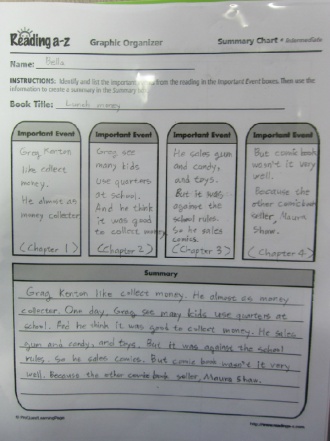 Reading a-z
Graphic Organizer
Summary Chart • Intermediate
Name: Bella
INSTRUCTIONS: Identify and list the important events from the reading in the Important Event boxes. Then use the
information to create a summary in the Summary
Book Title: Lunch money
Important Event
Greg Kenton
like collect
money.
He almost as
money collector
(Chapter 1)
Important Event
Greg see
many kids
use quarters
at school.
And he think
it was good
to collect money
(Chapter 2)
Important Event
He sales gum
and candy,
and toys.
But it was
against the
school rules.
So he sales
comics.
(Chapter 3)
Important Event
But comic book
wasn't it very
well.
Because the
other comic book
seller, Maura
Shaw.
(Chapter 4)
Summary
Greg, Kenton like collect money. He almost as money
collector. One day, Greg see many kids use quarters at
school. And he think it was good to collect money. He sales
gum and candy, and toys. But it was against the school
rules. So he sales comics. But comic book wasn't it very
well. Because the other comic book seller, Maura Shaw.